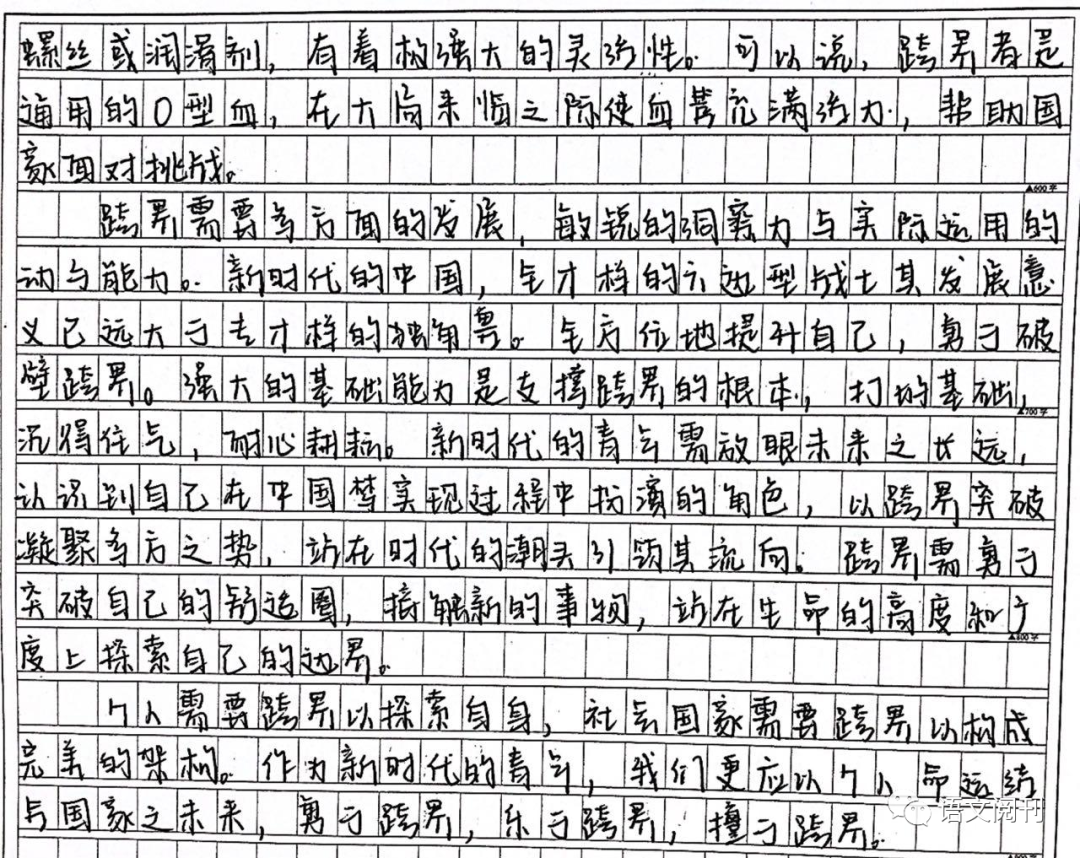 螺丝或润滑剂，有着构强大的灵活性。可以说，跨界者是
通用的O型血，在大局来临之际使血管充满活力，帮助国
家面对挑战。
▲600字
跨界需要多方面的发展，敏锐的洞察力与实际运用的
动与能力。新时代的中国，全才样的六边型战士其发展意
义已远大于专才样的独角兽。全方位地提升自己，勇于破
壁跨界。强大的基础能力是支撑跨界的根本，打好基础，
▲700字
沉得住气，耐心耕耘。新时代的青年需放眼未来之长远，
认识到自己在中国梦实现过程中扮演的角色，以跨界突破
凝聚多方之势，站在时代的潮头引领其流向。跨界需勇于
突破自己的舒适圈，接触新的事物，站在生命的高度和广
▲800字
度上探索自己的边界。
个人需要跨界以探索自身，社会国家需要跨界以构成
完美的架构。作为新时代的青年，我们更应以个人命运结
与国家之未来，勇于跨界，乐于跨界，擅于跨界。
语文阅刊
▲900字